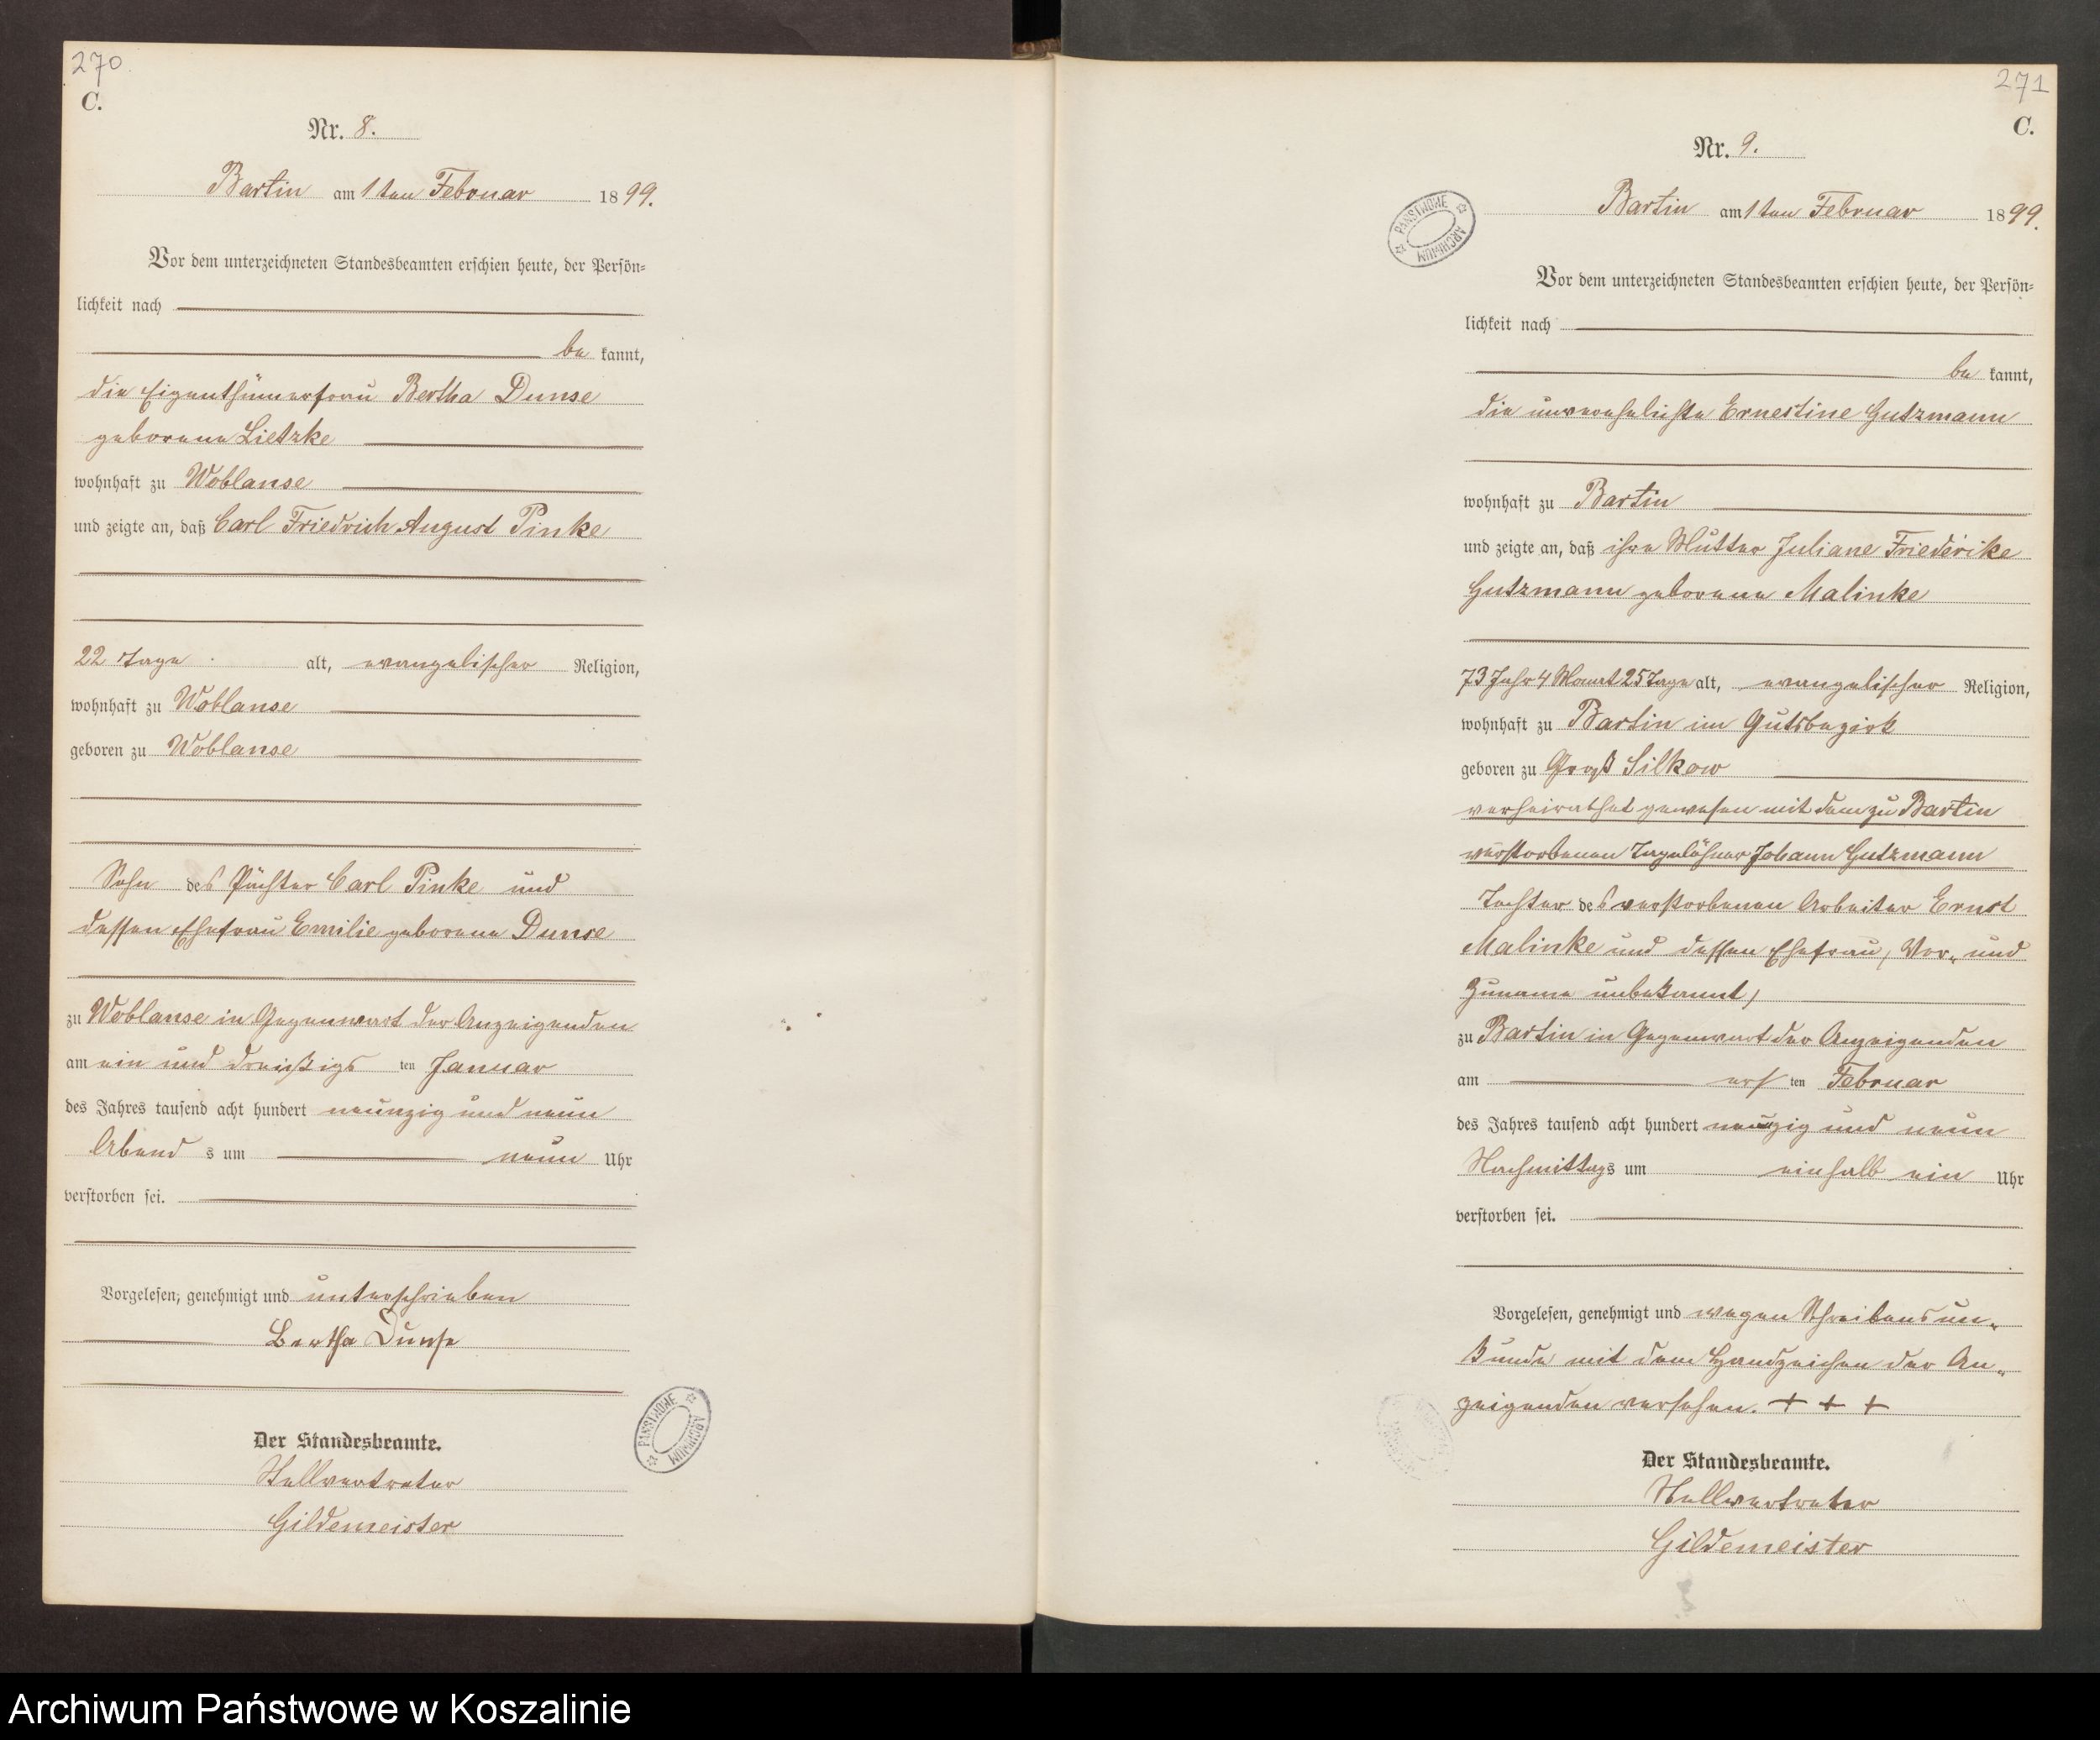 270
C.
Nr. 8.
Bartin am 1ten Februar 1899.
Vor dem unterzeichneten Standesbeamten erschien heute, der Persön=
lichkeit nach
be kannt,
die Eigenthümerfrau Bertha Dunse
geborene Lietzke
wohnhaft zu Woblanse
und zeigte an, daß Carl Friedrich August Pinke
22 Tage alt, evangelischer Religion,
wohnhaft zu Woblanse
geboren zu Woblanse
Sohn des Pächter Carl Pinke und
dessen Ehefrau Emilie geborene Dunse
zu Woblanse in Gegenwart der Anzeigenden
am ein und dreißigs ten Januar
des Jahres tausend acht hundert neunzig und neun
Abend s um neun Uhr
verstorben sei.
Vorgelesen, genehmigt und unterschrieben
Bertha Dunse
Der Standesbeamte.
Stellvertreter
Gildemeister
PAŃSTWOWE ARCHIWUM
271
C.
Nr. 9.
Bartin am 1ten Februar 1899.
PAŃSTWOWE ARCHIWUM
Vor dem unterzeichneten Standesbeamten erschien heute, der Persön=
lichkeit nach
be kannt,
die unverehelichte Ernestine Gutzmann
wohnhaft zu Bartin
und zeigte an, daß ihre Mutter Juliane Friederike
Gutzmann geborene Malinke
73 Jahr 4 Monat 25 Tage alt, evangelischer Religion,
wohnhaft zu Bartin im Gutsbezirk
geboren zu Groß Silkow
verheirathet gewesen mit dem zu Bartin
verstorbenen Tagelöhner Johann Gutzmann
Tochter des verstorbenen Arbeiter Ernst
Malinke und dessen Ehefrau, (Vor- und
Zuname unbekannt)
zu Bartin in Gegenwart der Anzeigenden
am ers ten Februar
des Jahres tausend acht hundert neunzig und neun
Nachmittags um einhalb ein Uhr
verstorben sei.
Vorgelesen, genehmigt und wegen Schreibensun-
kunde mit dem Handzeichen der An-
zeigenden versehen. + + +
Der Standesbeamte.
Stellvertreter
Gildemeister
Archiwum Państwowe w Koszalinie